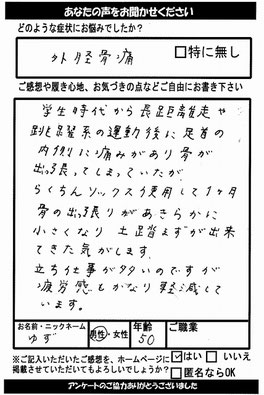 あなたの声をお聞かせください
どのような症状にお悩みでしたか?
外脛骨痛
□特に無し
ご感想や履き心地、お気づきの点などご自由にお書き下さい
学生時代から長距離走や
跳躍系の運動後に足首の
内側に痛みがあり骨が
出っ張ってしまっていたが
らくちんソックス使用して1ヶ月
骨の出っ張りがあきらかに
小さくなり土踏まずが出来
てきた気がします。
立ち仕事が多いのですが
疲労感もかなり軽減して
います。
お名前・ニックネーム
ゆず
男性・女性
年齢
50
ご職業
※ご記入いただいたご感想を、ホームページに
掲載させていただいてもよろしいでしょうか?
☑はい □いいえ
□匿名ならOK
アンケートのご協力ありがとうございました